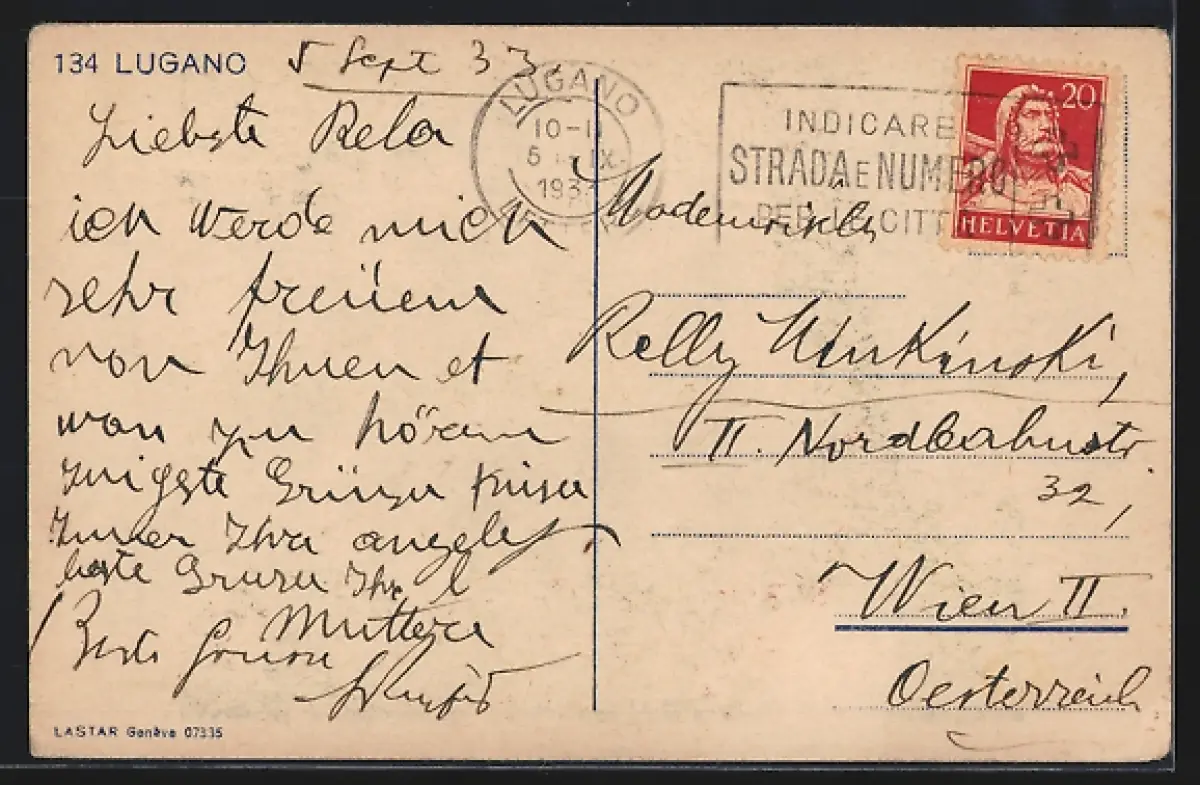 134 LUGANO
5 Sept 33.
Liebste Rela
ich werde mich
sehr freuen
von Ihnen et
was zu hören
Innigste Grüsse
Immer Ihre
beste Grusse Ihre
Mutter
Beste
LASTAR Genève 07335
LUGANO
10-11
5 IX
193
INDICARE
STRADA E NUMERO
PER LE CITT
20
HELVETIA
Mademoiselle
Relly
II. Nordbahnstr.
32,
Wien II.
Oesterreich